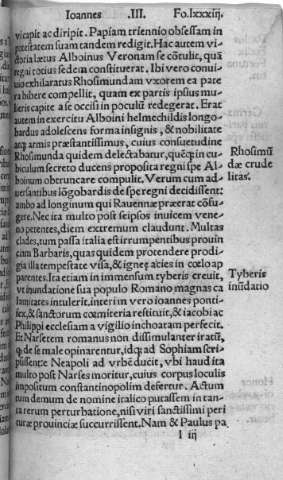 Ioannes .III. Fo.lxxxiiij.
vi capit ac diripit. Papiam triennio obsessam in
potestatem suam tandem redigit. Hac autem vi-
ctoria lætus Alboinus Veronam se cõtulit, quã
regni totius sedem constituerat. Ibi vero conui-
uio exhilaratus Rhosimundam vxorem ea pate
ra bibere compellit, quam ex partis ipsius mu-
lieris capite a se occisi in poculũ redegerat. Erat
autem in exercitu Alboini helmechildis longo-
bardus adolescens forma insignis, & nobilitate
atq; armis præstantissimus, cuius consuetudine
Rhosimunda quidem delectabatur, quẽq; in cu-
biculum secreto ducens proposita regni spe Al-
boinum obtruncare compulit. Verum cum ad-
uersantibus lõgobardis de spe regni decidissent:
ambo ad longinum qui Rauennæ præerat cõfu-
gere. Nec ita multo post seipsos inuicem vene-
no petentes, diem extremum claudunt. Multas
clades, tum passa italia est irrumpentibus prouin
ciam Barbaris, quas quidem protendere prodi-
gia illa tempestate visa, & igneæ acies in cœlo ap
parentes. Ita etiam in immensum tyberis creuit,
vt inundatione sua populo Romano magnas ca
lamitates intulerit. interim vero ioannes ponti-
fex, & sanctorum cœmiteria restituit, & iacobi ac
Philippi ecclesiam a vigilio inchoatam perfecit.
Et Narsetem romanus non dissimulanter iratũ,
q̃ de se male opinarentur, idq; ad Sophiam scri
psissent: Neapoli ad vrbẽ ducit, vbi haud ita
multo post Narses moritur, cuius corpus loculis
impositum constantinopolim defertur. Actum
tum demum de nomine italico putassem in tan-
ta rerum perturbatione, nisi viri sanctissimi peri
turæ prouinciæ succurrissent. Nam & Paulus pa
l iij
Rhosimũ
dæ crude
litas.
Tyberis
inũdatio